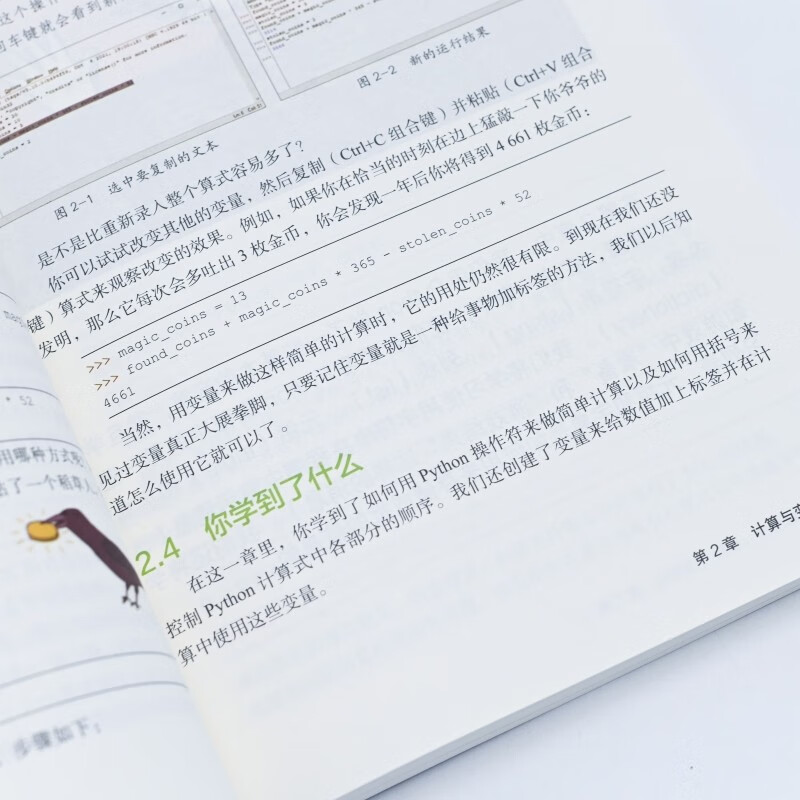 这个操作
车键就会看到新
图 2-1 选中要复制的文本
图 2-2 新的运行结果
是不是比重新录入整个算式容易多了？
你可以试试改变其他的变量，然后复制（Ctrl+C 组合键）并粘贴（Ctrl+V 组合
键）算式来观察改变的效果。例如，如果你在恰当的时刻在边上猛敲一下你爷爷的
发明，那么它每次会多吐出 3 枚金币，你会发现一年后你将得到 4 661 枚金币：
>>> magic_coins = 13
>>> found_coins + magic_coins * 365 - stolen_coins * 52
4661
当然，用变量来做这样简单的计算时，它的用处仍然很有限。到现在我们还没
见过变量真正大展拳脚，只要记住变量就是一种给事物加标签的方法，我们以后知
道怎么使用它就可以了。
2.4 你学到了什么
在这一章里，你学到了如何用 Python 操作符来做简单计算以及如何用括号来
控制 Python 计算式中各部分的顺序。我们还创建了变量来给数值加上标签并在计
算中使用这些变量。
第 2 章 计算与变
* 52
用哪种方式
了一个稻草人
步骤如下：